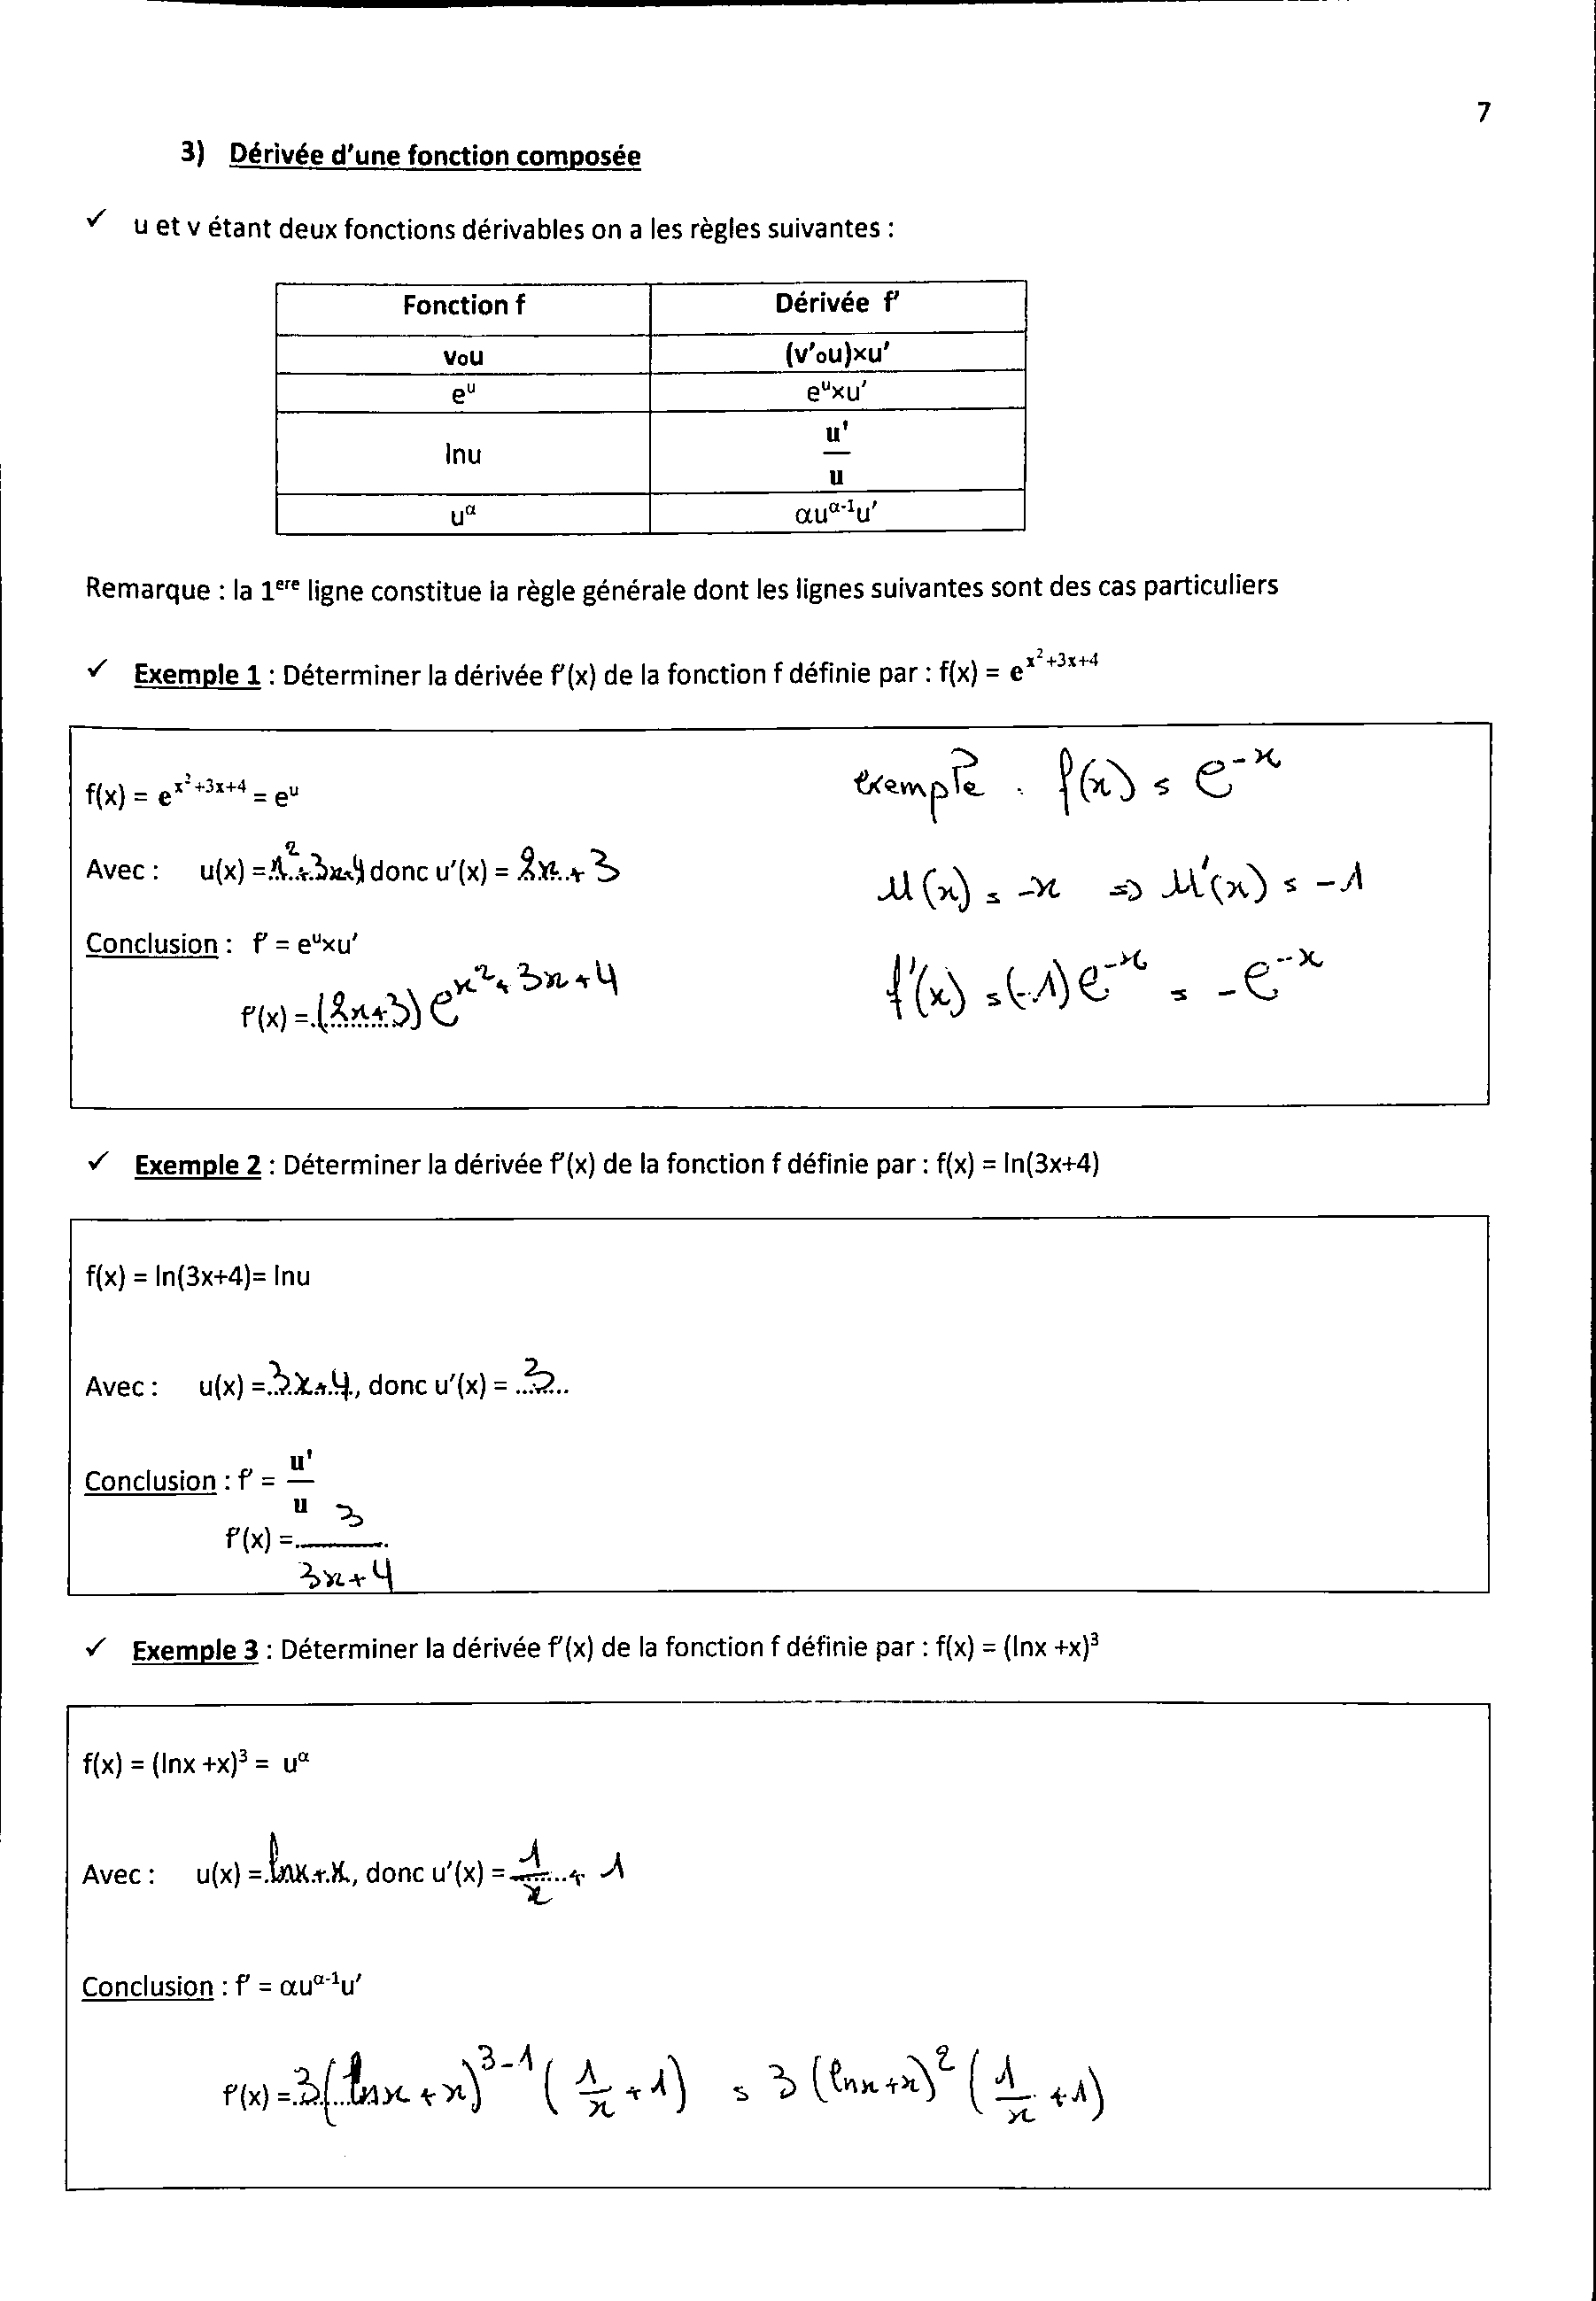 7
3) Dérivée d'une fonction composée
✓ u et v étant deux fonctions dérivables on a les règles suivantes :
Fonction f | Dérivée f'
vou | (v'ou)×u'
e^u | e^u×u'
lnu | u'/u
u^α | αu^(α-1)u'
Remarque : la 1ere ligne constitue la règle générale dont les lignes suivantes sont des cas particuliers
✓ Exemple 1 : Déterminer la dérivée f'(x) de la fonction f définie par : f(x) = e^(x²+3x+4)
f(x) = e^(x²+3x+4) = e^u
Avec : u(x) = x²+3x+4 donc u'(x) = 2x+3
Conclusion : f' = e^u×u'
f'(x) = (2x+3) e^(x²+3x+4)
exemple : f(x) = e^(-x)
u(x) = -x => u'(x) = -1
f'(x) = (-1)e^(-x) = -e^(-x)
✓ Exemple 2 : Déterminer la dérivée f'(x) de la fonction f définie par : f(x) = ln(3x+4)
f(x) = ln(3x+4)= lnu
Avec : u(x) = 3x+4, donc u'(x) = 3
Conclusion : f' = u'/u
f'(x) = 3/(3x+4)
✓ Exemple 3 : Déterminer la dérivée f'(x) de la fonction f définie par : f(x) = (lnx +x)³
f(x) = (lnx +x)³ = u^α
Avec : u(x) = lnx+x, donc u'(x) = 1/x + 1
Conclusion : f' = αu^(α-1)u'
f'(x) = 3(lnx+x)^(3-1) (1/x +1) = 3(lnx+x)² (1/x +1)